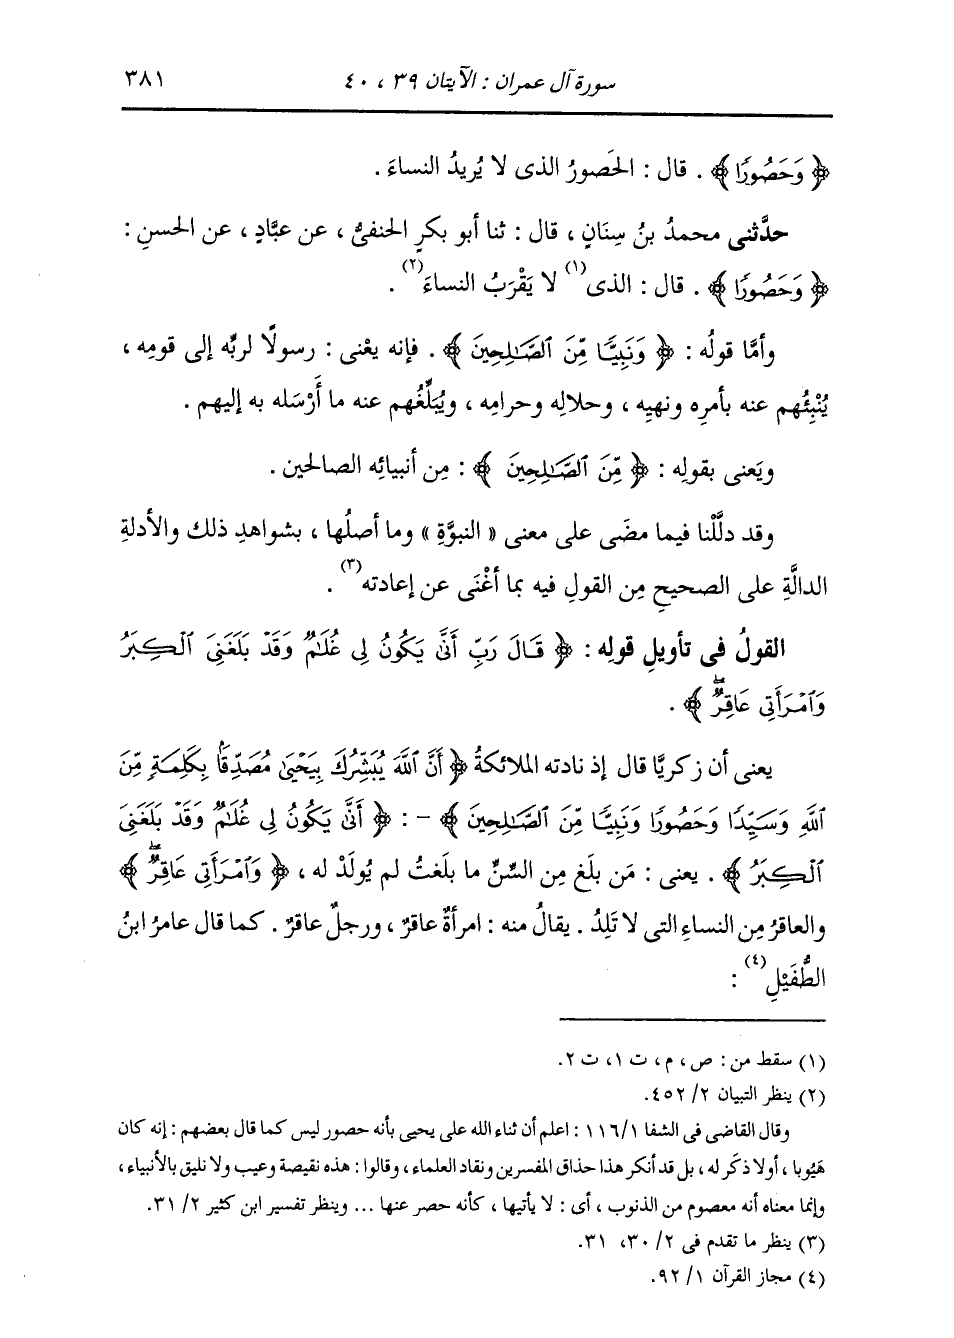 سورة آل عمران : الآيتان ٣٩ ، ٤٠
٣٨١
﴿ وَحَصُورًا ﴾ . قال : الحَصورُ الذى لا يُريدُ النساءَ .
حدَّثنى محمدُ بنُ سِنَانٍ ، قال : ثنا أبو بكرٍ الحنفىُّ ، عن عبَّادٍ ، عن الحسنِ :
﴿ وَحَصُورًا ﴾ . قال : الذى(١) لا يَقْرَبُ النساءَ(٢) .
وأمَّا قولُه : ﴿ وَنَبِيًّا مِّنَ ٱلصَّـٰلِحِينَ ﴾ . فإنه يعْنى : رسولًا لربِّه إلى قومِه ،
يُنْبِئُهم عنه بأمرِه ونهيِه ، وحلالِه وحرامِه ، ويُبَلِّغُهم عنه ما أَرْسَله به إليهم .
ويَعنى بقولِه : ﴿ مِّنَ ٱلصَّـٰلِحِينَ ﴾ : مِن أنبيائِه الصالحين .
وقد دلَّلْنا فيما مضَى على معنى « النبوَّةِ » وما أصلُها ، بشواهدِ ذلك والأدلةِ
الدالَّةِ على الصحيحِ مِن القولِ فيه بما أغْنَى عن إعادتِه(٣) .
القولُ فى تأويلِ قولِه : ﴿ قَالَ رَبِّ أَنَّىٰ يَكُونُ لِى غُلَـٰمٌ وَقَدْ بَلَغَنِىَ ٱلْكِبَرُ
وَٱمْرَأَتِى عَاقِرٌۖ ﴾ .
يعنى أن زكريَّا قال إذ نادته الملائكةُ ﴿ أَنَّ ٱللَّهَ يُبَشِّرُكَ بِيَحْيَىٰ مُصَدِّقًۢا بِكَلِمَةٍ مِّنَ
ٱللَّهِ وَسَيِّدًا وَحَصُورًا وَنَبِيًّا مِّنَ ٱلصَّـٰلِحِينَ ﴾ - : ﴿ أَنَّىٰ يَكُونُ لِى غُلَـٰمٌ وَقَدْ بَلَغَنِىَ
ٱلْكِبَرُ ﴾ . يعنى : مَن بلَغ مِن السِّنِّ ما بلَغتُ لم يُولَدْ له ، ﴿ وَٱمْرَأَتِى عَاقِرٌۖ ﴾
والعاقرُ مِن النساءِ التى لا تَلِدُ . يقالُ منه : امرأةٌ عاقرٌ ، ورجلٌ عاقرٌ . كما قال عامرُ ابنُ
الطُّفَيْلِ(٤) :
(١) سقط من : ص ، م ، ت ١ ، ت ٢.
(٢) ينظر التبيان ٢/ ٤٥٢.
وقال القاضى فى الشفا ١/ ١١٦ : اعلم أن ثناء الله على يحيى بأنه حصور ليس كما قال بعضهم : إنه كان
هَيُوبا ، أو لا ذكَر له ، بل قد أنكر هذا حذاق المفسرين ونقاد العلماء ، وقالوا : هذه نقيصة وعيب ولا نليق بالأنبياء ،
وإنما معناه أنه معصوم من الذنوب ، أى : لا يأتيها ، كأنه حصر عنها ... وينظر تفسير ابن كثير ٢/ ٣١.
(٣) ينظر ما تقدم فى ٢/ ٣٠، ٣١.
(٤) مجاز القرآن ١/ ٩٢.